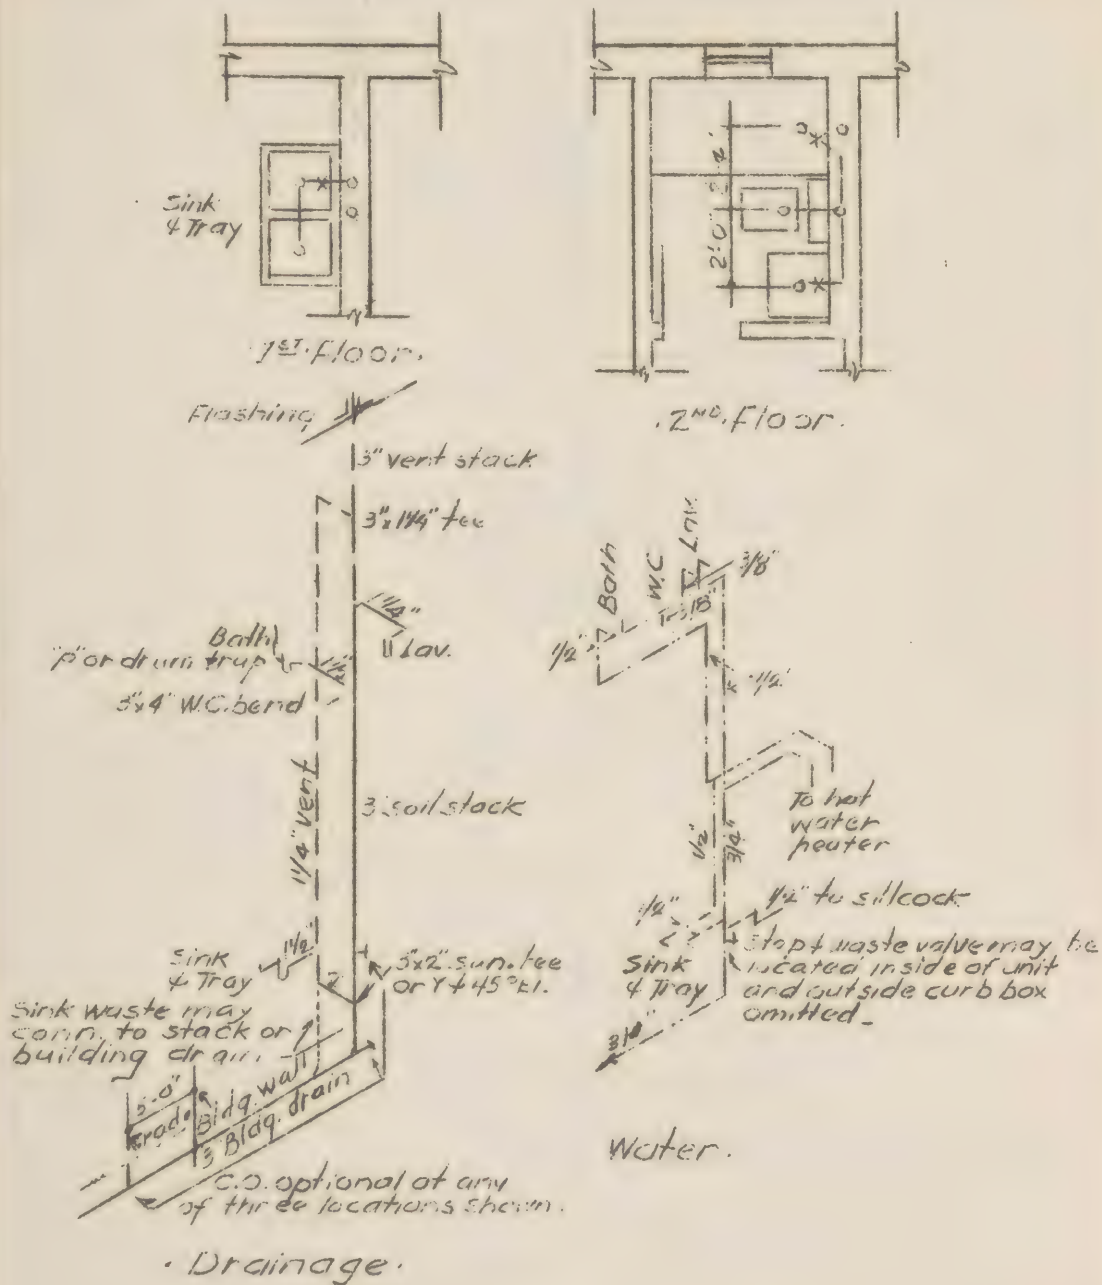 Sink
& Tray
1ST Floor.
2'-0"
2'-4"
2ND Floor.
Flashing
3" vent stack
3"x1¼" tee
1¼"
Lav.
Bath
"P" or drum trap
1½"
3"x4" W.C. bend
1¼" vent
3" soil stack
Sink
& Tray
1½"
2"
3"x2" san. tee
or Y & 45° El.
Sink waste may
conn. to stack or
building drain
5'-0"
Grade
Bldg. wall
3" Bldg. drain
C.O. optional at any
of three locations shown.
Drainage.
Bath
W.C
Lav.
3/8"
3/8"
1/2"
1/2"
To hot
water
heater
1/2"
3/4"
1/2"
1/2" to sillcock
Sink
& Tray
Stop & waste valve may be
located inside of unit
and outside curb box
omitted.
3/4"
Water.